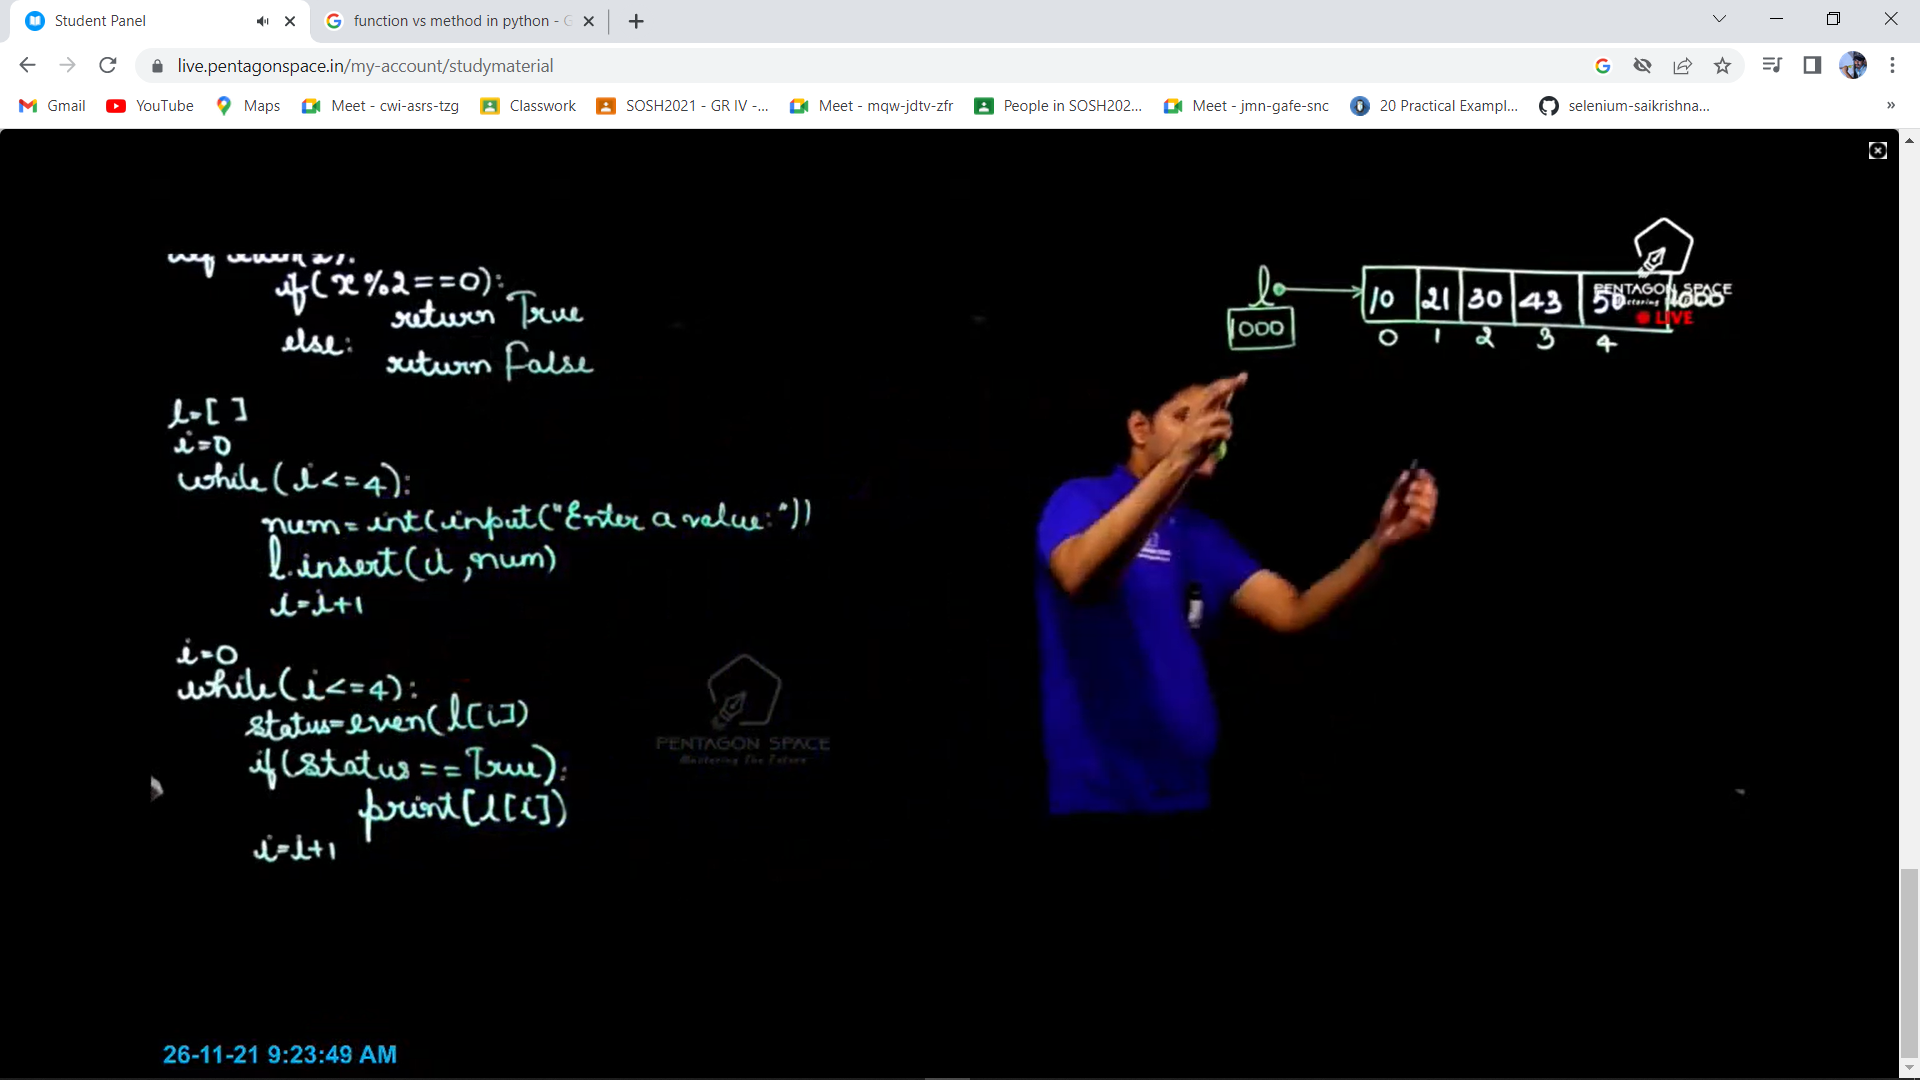 Student Panel
function vs method in python - G
live.pentagonspace.in/my-account/studymaterial
Gmail
YouTube
Maps
Meet - cwi-asrs-tzg
Classwork
SOSH2021 - GR IV -...
Meet - mqw-jdtv-zfr
People in SOSH202...
Meet - jmn-gafe-snc
20 Practical Exampl...
selenium-saikrishna...
»
if(x%2==0):
return True
else:
return False
l=[ ]
i=0
while(i<=4):
num=int(input("Enter a value:"))
l.insert(i,num)
i=i+1
i=0
while(i<=4):
status=even(l[i])
if(status==True):
print(l[i])
i=i+1
l
1000
10 21 30 43 50 1000
0 1 2 3 4
PENTAGON SPACE
LIVE
PENTAGON SPACE
Mastering The Future
26-11-21 9:23:49 AM